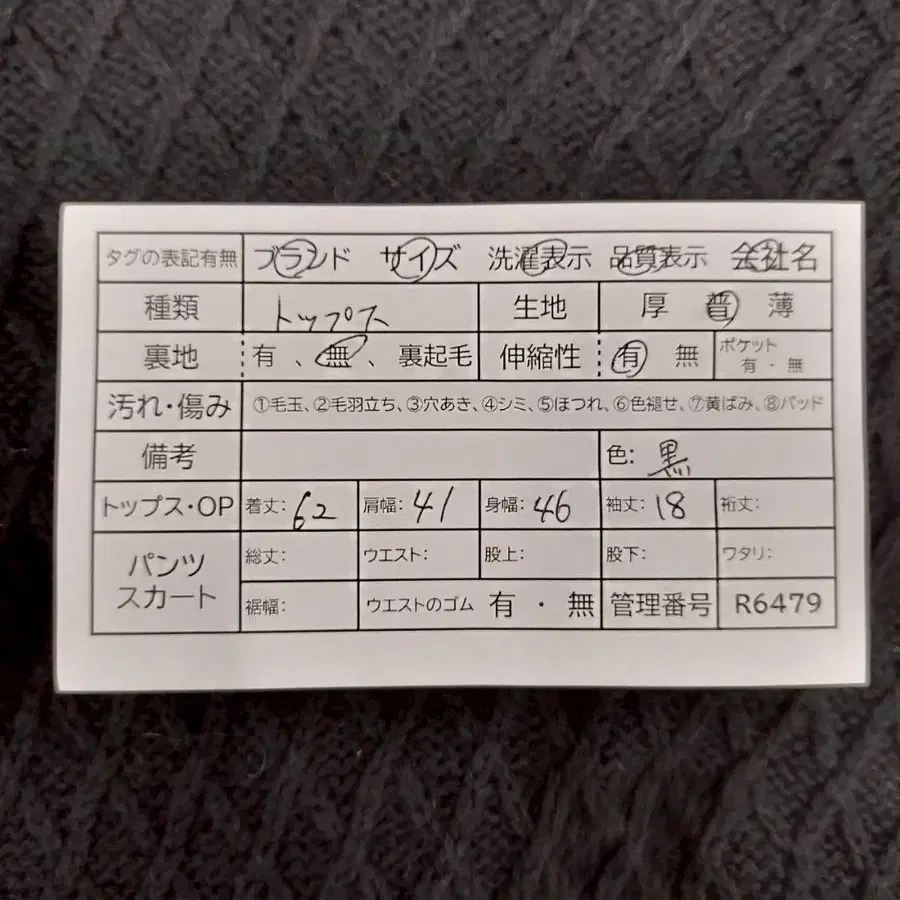 タグの表記有無 ブランド サイズ 洗濯表示 品質表示 会社名
種類 トップス 生地 厚 普 薄
裏地 有 、無 、裏起毛 伸縮性 有 無 ポケット 有・無
汚れ・傷み ①毛玉、②毛羽立ち、③穴あき、④シミ、⑤ほつれ、⑥色褪せ、⑦黄ばみ、⑧パッド
備考 色: 黒
トップス・OP 着丈: 62 肩幅: 41 身幅: 46 袖丈: 18 裄丈:
パンツ スカート 総丈: ウエスト: 股上: 股下: ワタリ:
裾幅: ウエストのゴム 有 ・ 無 管理番号 R6479